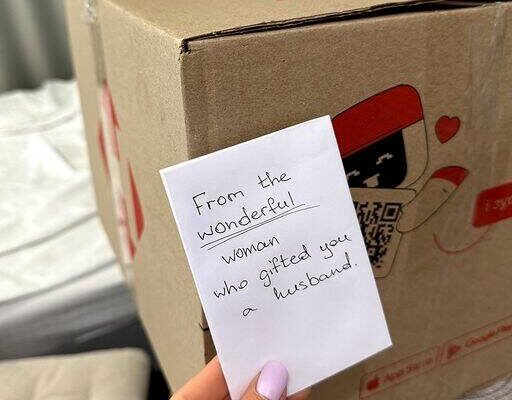 From the
wonderful
woman
who gifted you
a husband.
App Store
Google Play